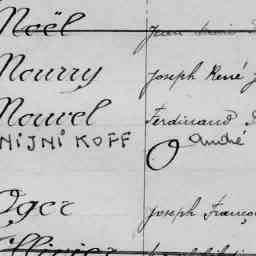 Noël Jean
Mourry Joseph René J
Mourel Ferdinand
NiJNi KOFF André
Oger Joseph Franço
Ollivier